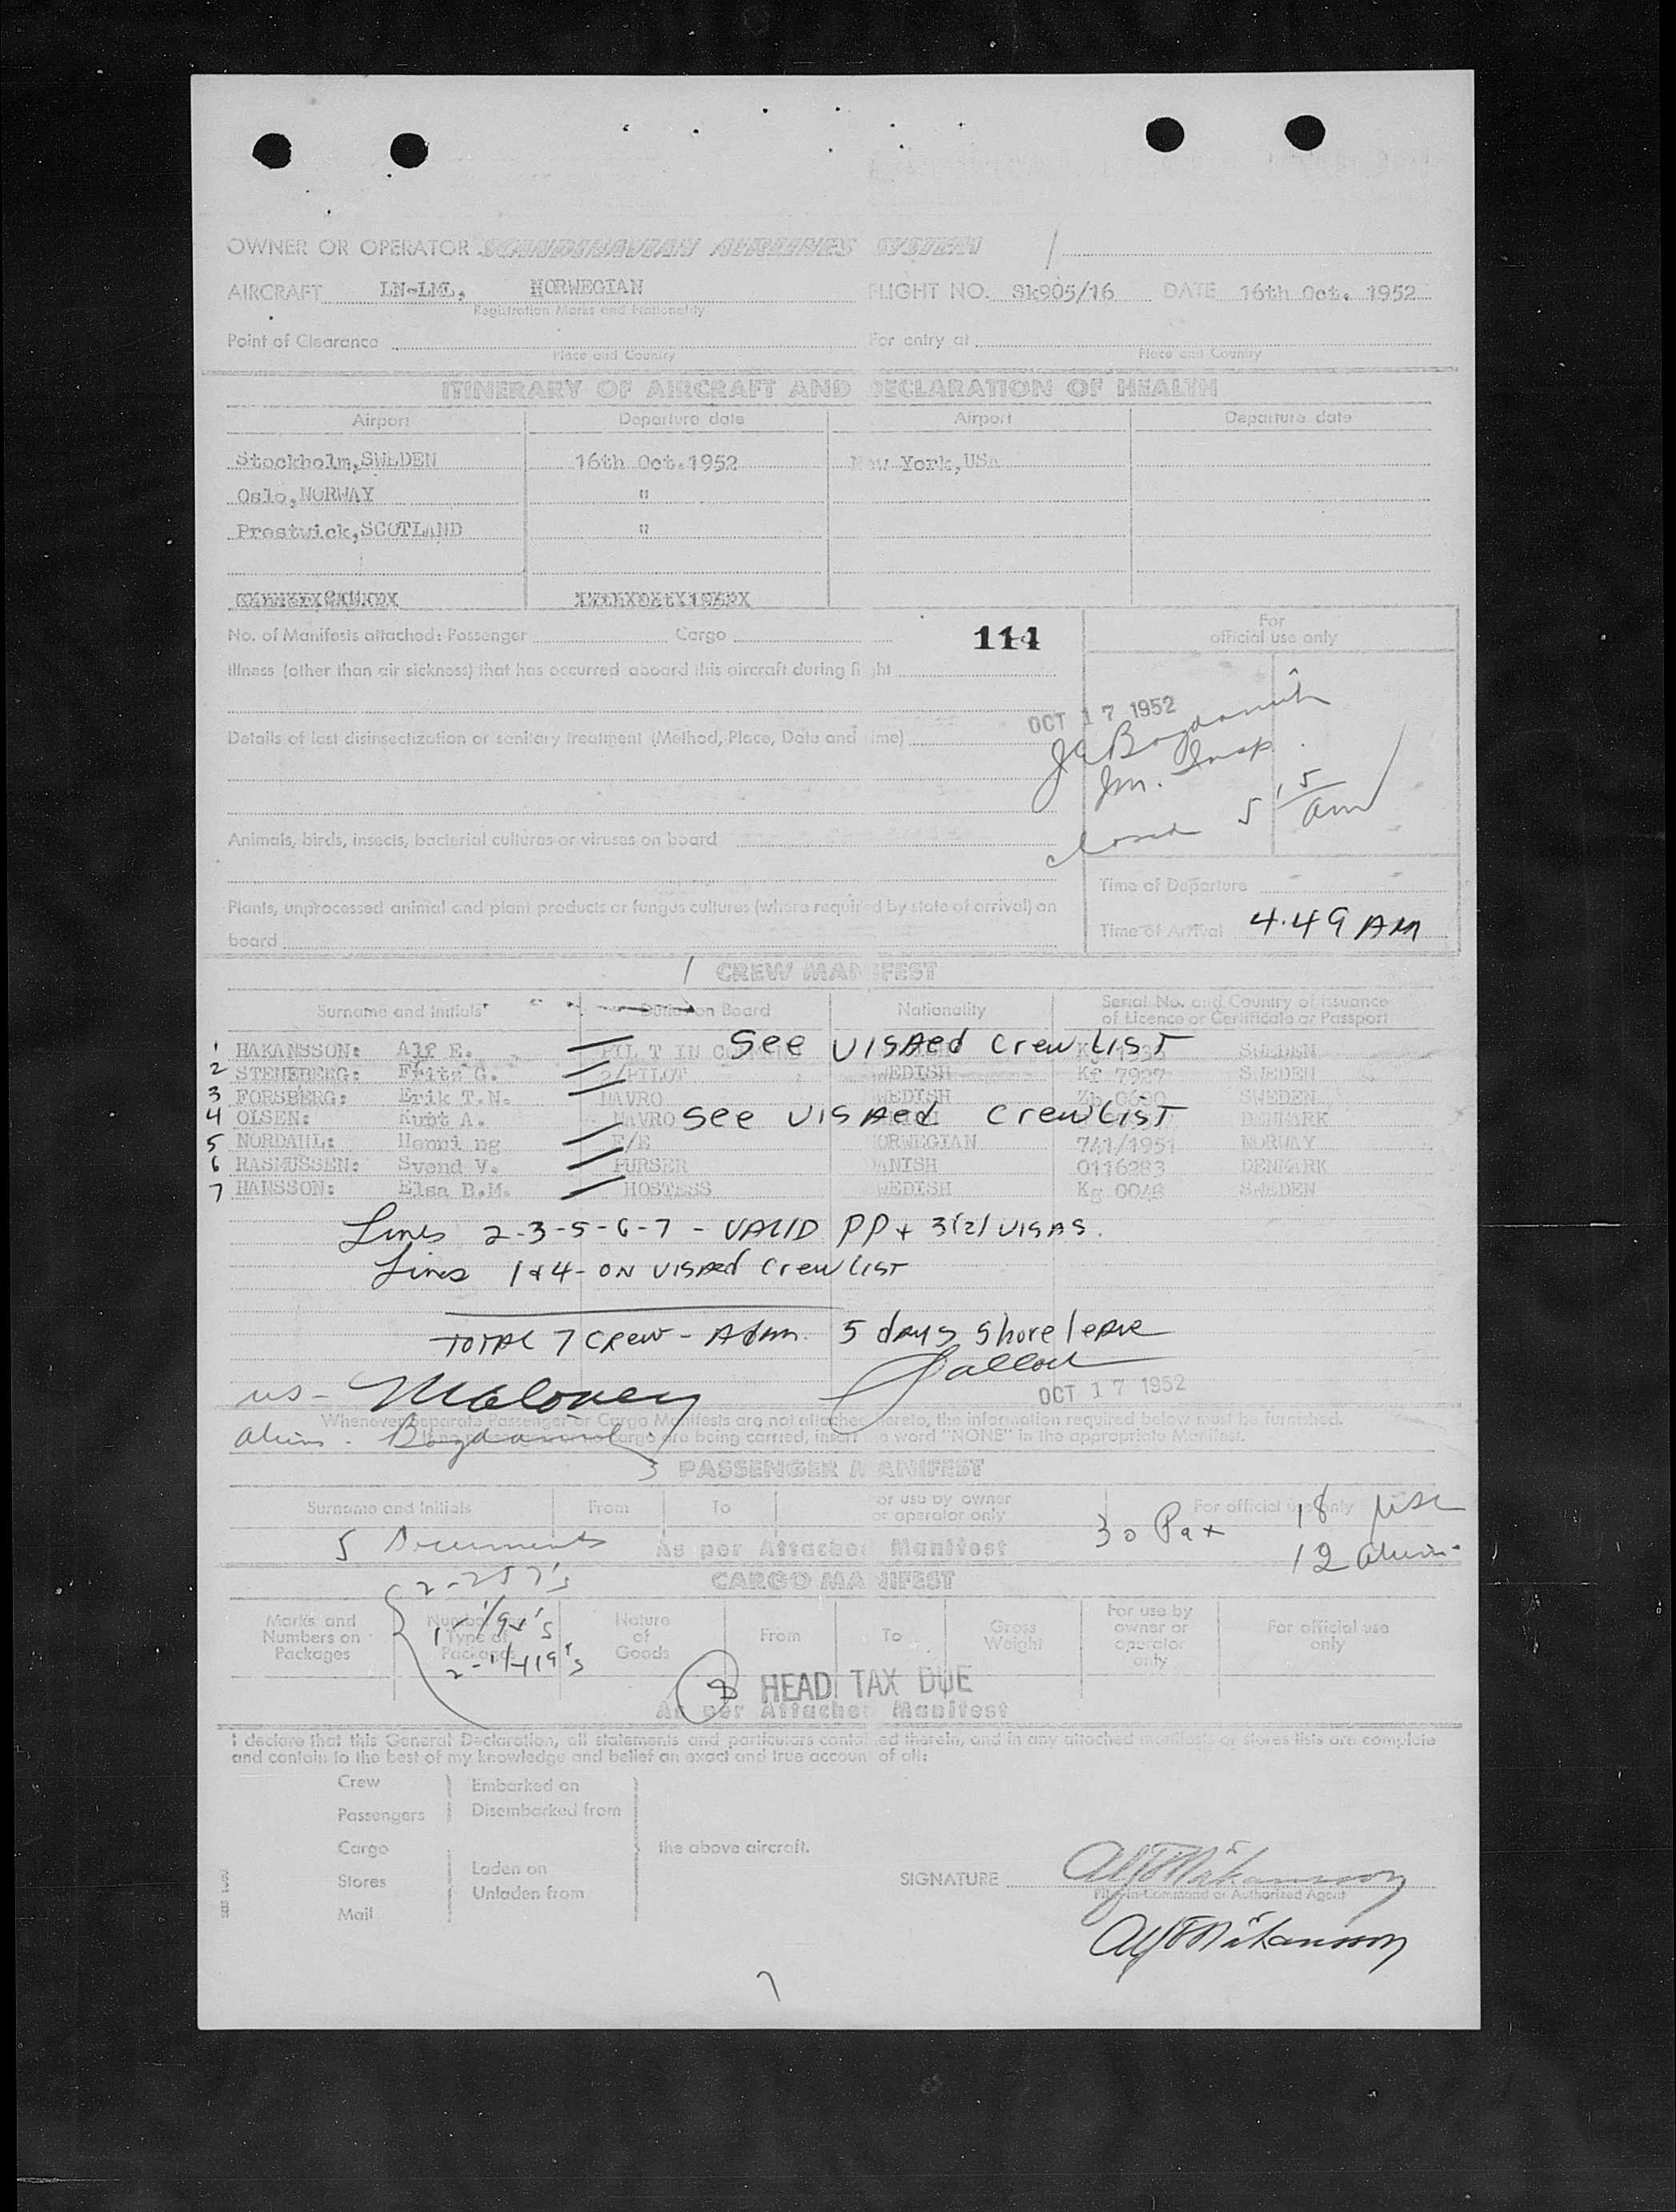 OWNER OR OPERATOR SCANDINAVIAN AIRLINES SYSTEM /
AIRCRAFT LN-LML, NORWEGIAN FLIGHT NO. Sk905/16 DATE 16th Oct. 1952
Registration Marks and Nationality
Point of Clearance For entry at
Place and Country Place and Country
ITINERARY OF AIRCRAFT AND DECLARATION OF HEALTH
Airport Departure date Airport Departure date
Stockholm, SWEDEN 16th Oct. 1952 New York, USA
Oslo, NORWAY "
Prestwick, SCOTLAND "
No. of Manifests attached: Passenger Cargo 114
For
official use only
Illness (other than air sickness) that has occurred aboard this aircraft during flight
OCT 17 1952
Details of last disinsectization or sanitary treatment (Method, Place, Date and Time)
Im. Insp.
closed 5 15 am
Animals, birds, insects, bacterial cultures or viruses on board
Time of Departure
Plants, unprocessed animal and plant products or fungus cultures (where required by state of arrival) on
board
Time of Arrival 4.49 AM
/ CREW MANIFEST
Surname and Initials Duties on Board Nationality Serial No. and Country of issuance
of Licence or Certificate or Passport
1 HAKANSSON: Alf E. See VISAed Crew LIST SWEDEN
2 STENEBERG: Fritz G. 2/PILOT SWEDISH Kf 7927 SWEDEN
3 FORSBERG: Erik T.N. NAVRO SWEDISH SWEDEN
4 OLSEN: Kurt A. NAVRO See VISAed Crew LIST DENMARK
5 NORDAHL: Henning F/E NORWEGIAN 741/1951 NORWAY
6 RASMUSSEN: Svend V. PURSER DANISH 0116283 DENMARK
7 HANSSON: Elsa B.M. HOSTESS SWEDISH Kg 0046 SWEDEN
Lines 2-3-5-6-7 - VALID PP + 3(2) VISAS.
Lines 1 & 4 - ON VISAed Crew LIST
TOTAL 7 Crew - Adm. 5 days Shore leave
US - Maloney
OCT 17 1952
Whenever separate Passenger or Cargo Manifests are not attached hereto, the information required below must be furnished.
If no passengers or no cargo are being carried, insert the word "NONE" in the appropriate Manifest.
Aliens -
3 PASSENGER MANIFEST
Surname and Initials From To For use by owner
or operator only For official use only
5 Documents As per Attached Manifest 30 Pax 18 USC
12 Aliens
CARGO MANIFEST
2-257's
Marks and
Numbers on
Packages
Number and
Type of
Packages
Nature
of
Goods
From To Gross
Weight
For use by
owner or
operator
only
For official use
only
8 HEAD TAX DUE
As per Attached Manifest
I declare that this General Declaration, all statements and particulars contained therein, and in any attached manifests or stores lists are complete
and contain to the best of my knowledge and belief an exact and true account of all:
Crew Embarked on
Passengers Disembarked from
Cargo the above aircraft.
Stores Laden on
Unladen from
Mail
SIGNATURE Alf E Håkansson
Pilot-in-Command or Authorized Agent
Alf E Håkansson
7